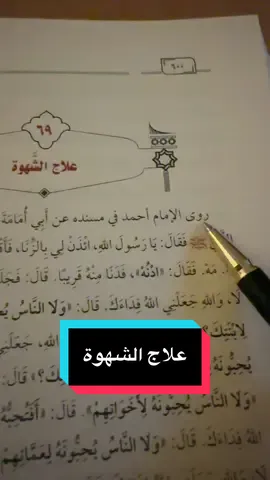 ٦٠٠
٦٩
علاج الشَّهوة
روى الإمام أحمد في مسنده عن أبي أُمَامَةَ
فَقَالَ: يَا رَسُولَ اللهِ، ائْذَنْ لِي بِالزِّنَا، فَأَقْ
مَهْ. فَقَالَ: «ادْنُهْ»، فَدَنَا مِنْهُ قَرِيبًا. قَالَ: فَجَلَـ
لَا، وَاللهِ جَعَلَنِي اللهُ فِدَاءَكَ. قَالَ: «وَلَا النَّاسُ يُحِبُّـ
لِابْنَتِكَ؟
علاج الشهوة
الله، جَعَلَنِي
يُحِبُّونَهُ
قَالَ: «وَلَا النَّاسُ يُحِبُّونَهُ لِأَخَوَاتِهِمْ». قَالَ: «أَفَتُحِبُّهُ
فِدَاءَكَ. قَالَ: «وَلَا النَّاسُ يُحِبُّونَهُ لِعَمَّاتِهِمْ